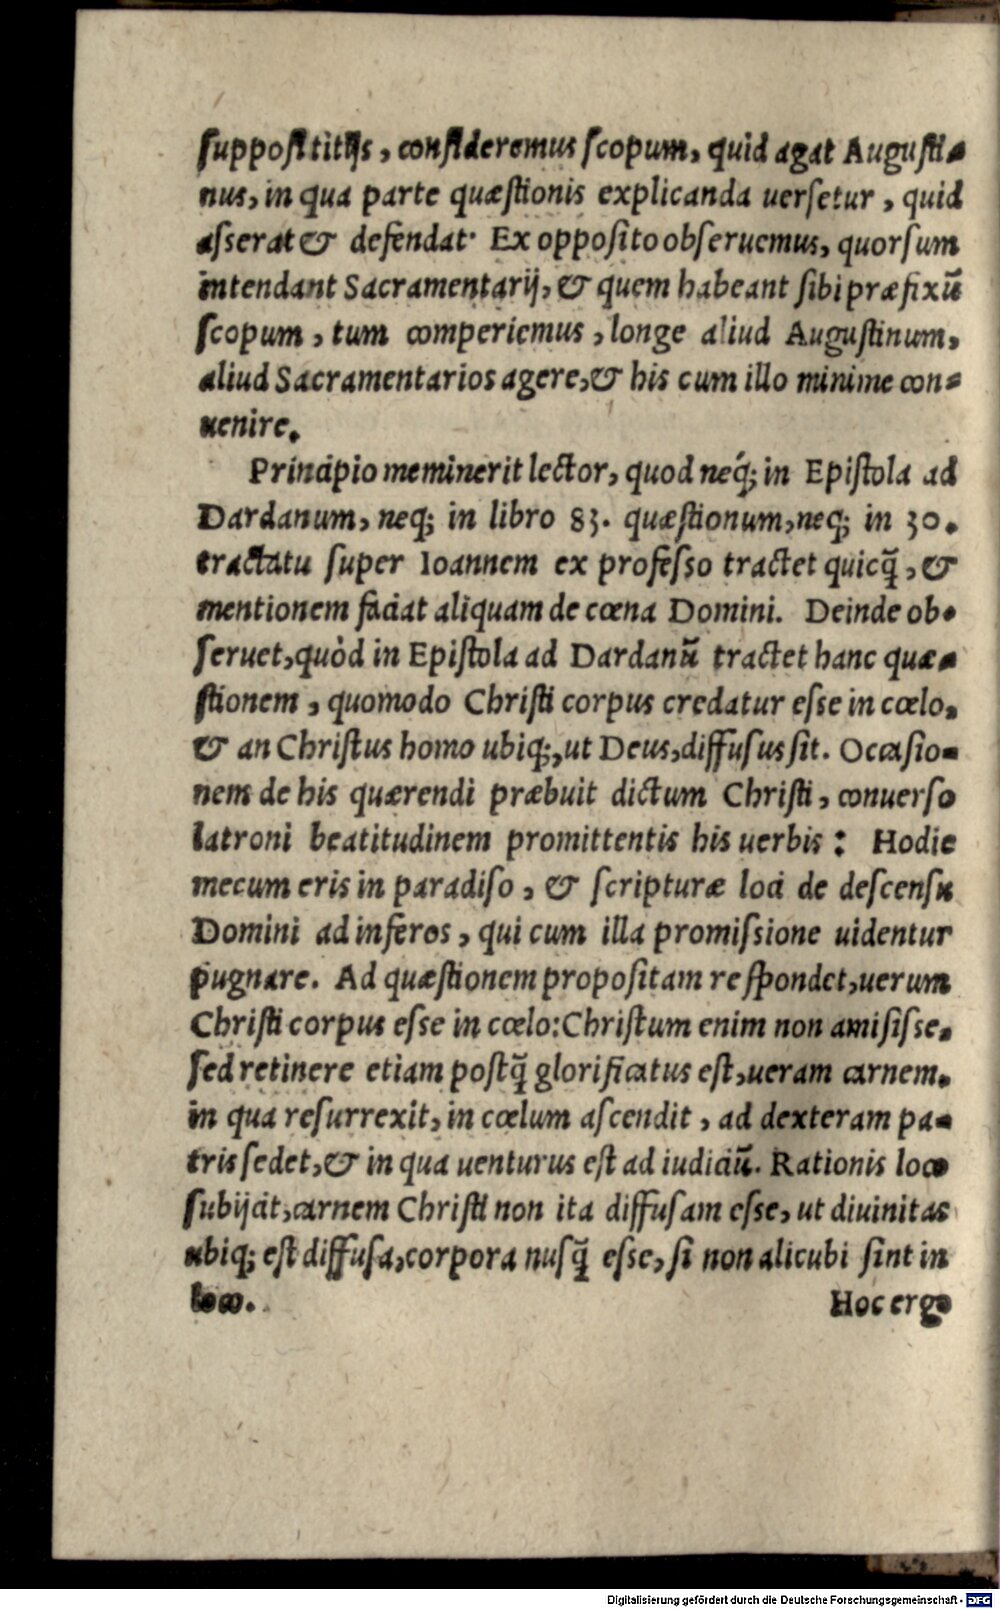 suppositiijs, consideremus scopum, quid agat Augusti-
nus, in qua parte quæstionis explicanda uersetur, quid
asserat & defendat. Ex opposito obseruemus, quorsum
intendant Sacramentarij, & quem habeant sibi præfixũ
scopum, tum comperiemus, longe aliud Augustinum,
aliud Sacramentarios agere, & his cum illo minime con-
uenire.
Principio meminerit lector, quod neq́; in Epistola ad
Dardanum, neq; in libro 83. quæstionum, neq; in 30.
tractatu super Ioannem ex professo tractet quicq̃, &
mentionem faciat aliquam de cœna Domini. Deinde ob-
seruet, quòd in Epistola ad Dardanũ tractet hanc quæ-
stionem, quomodo Christi corpus credatur esse in cœlo,
& an Christus homo ubiq;, ut Deus, diffusus sit. Occasio-
nem de his quærendi præbuit dictum Christi, conuerso
latroni beatitudinem promittentis his uerbis: Hodie
mecum eris in paradiso, & scripturæ loci de descensu
Domini ad inferos, qui cum illa promissione uidentur
pugnare. Ad quæstionem propositam respondet, uerum
Christi corpus esse in cœlo: Christum enim non amisisse,
sed retinere etiam postq̃ glorificatus est, ueram carnem,
in qua resurrexit, in cœlum ascendit, ad dexteram pa-
tris sedet, & in qua uenturus est ad iudiciũ. Rationis loco
subijcit, carnem Christi non ita diffusam esse, ut diuinitas
ubiq; est diffusa, corpora nusq̃ esse, si non alicubi sint in
loco. Hoc ergo
Digitalisierung gefördert durch die Deutsche Forschungsgemeinschaft - DFG